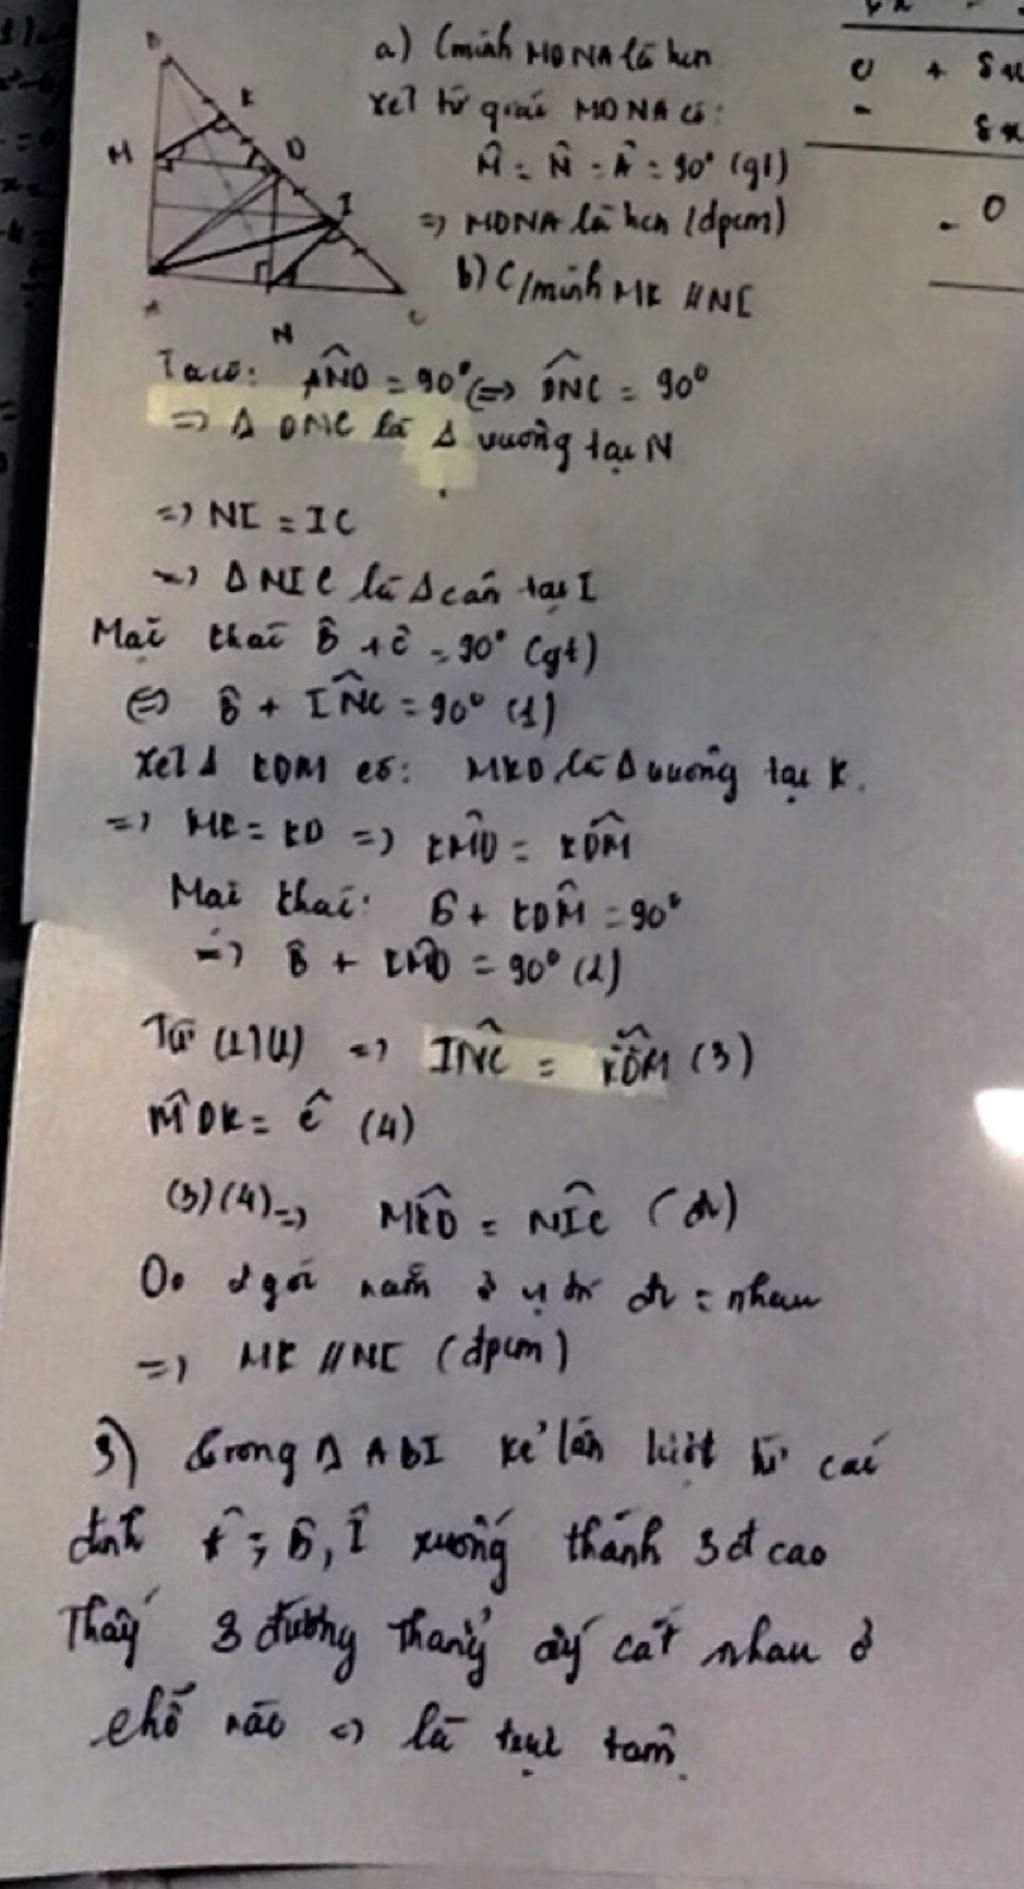 a) C/minh MDNA là hcn
Xét tứ giác MDNA có:
M̂ = N̂ = Â = 90° (gt)
=> MDNA là hcn (đpcm)
b) C/minh MK // NI
B
K
M
D
I
A
N
C
Ta có: AND = 90° <=> DNC = 90°
=> Δ DNC là Δ vuông tại N
=> NI = IC
=> Δ NIC là Δ cân tại I
Mại thaí B̂ + Ĉ = 90° (gt)
<=> B̂ + INC = 90° (1)
Xét Δ KDM có: MKD là Δ vuông tại K.
=> MK = KD => KMD = KDM
Mại thaí: B̂ + KDM = 90°
=> B̂ + KMD = 90° (2)
Từ (1)(2) => INC = KDM (3)
MDK = Ĉ (4)
(3)(4) => MKD = NIC (đv)
Do 2 góc nằm ở vị trí đv = nhau
=> MK // NI (đpcm)
3) trong Δ ABI kẻ lần lượt từ các
đỉnh Â; B̂, Î xuống thành 3 đ cao
Thấy 3 đường thẳng ấy cắt nhau ở
chỗ nào => là trực tâm.
0 + 8x
- 8x
0